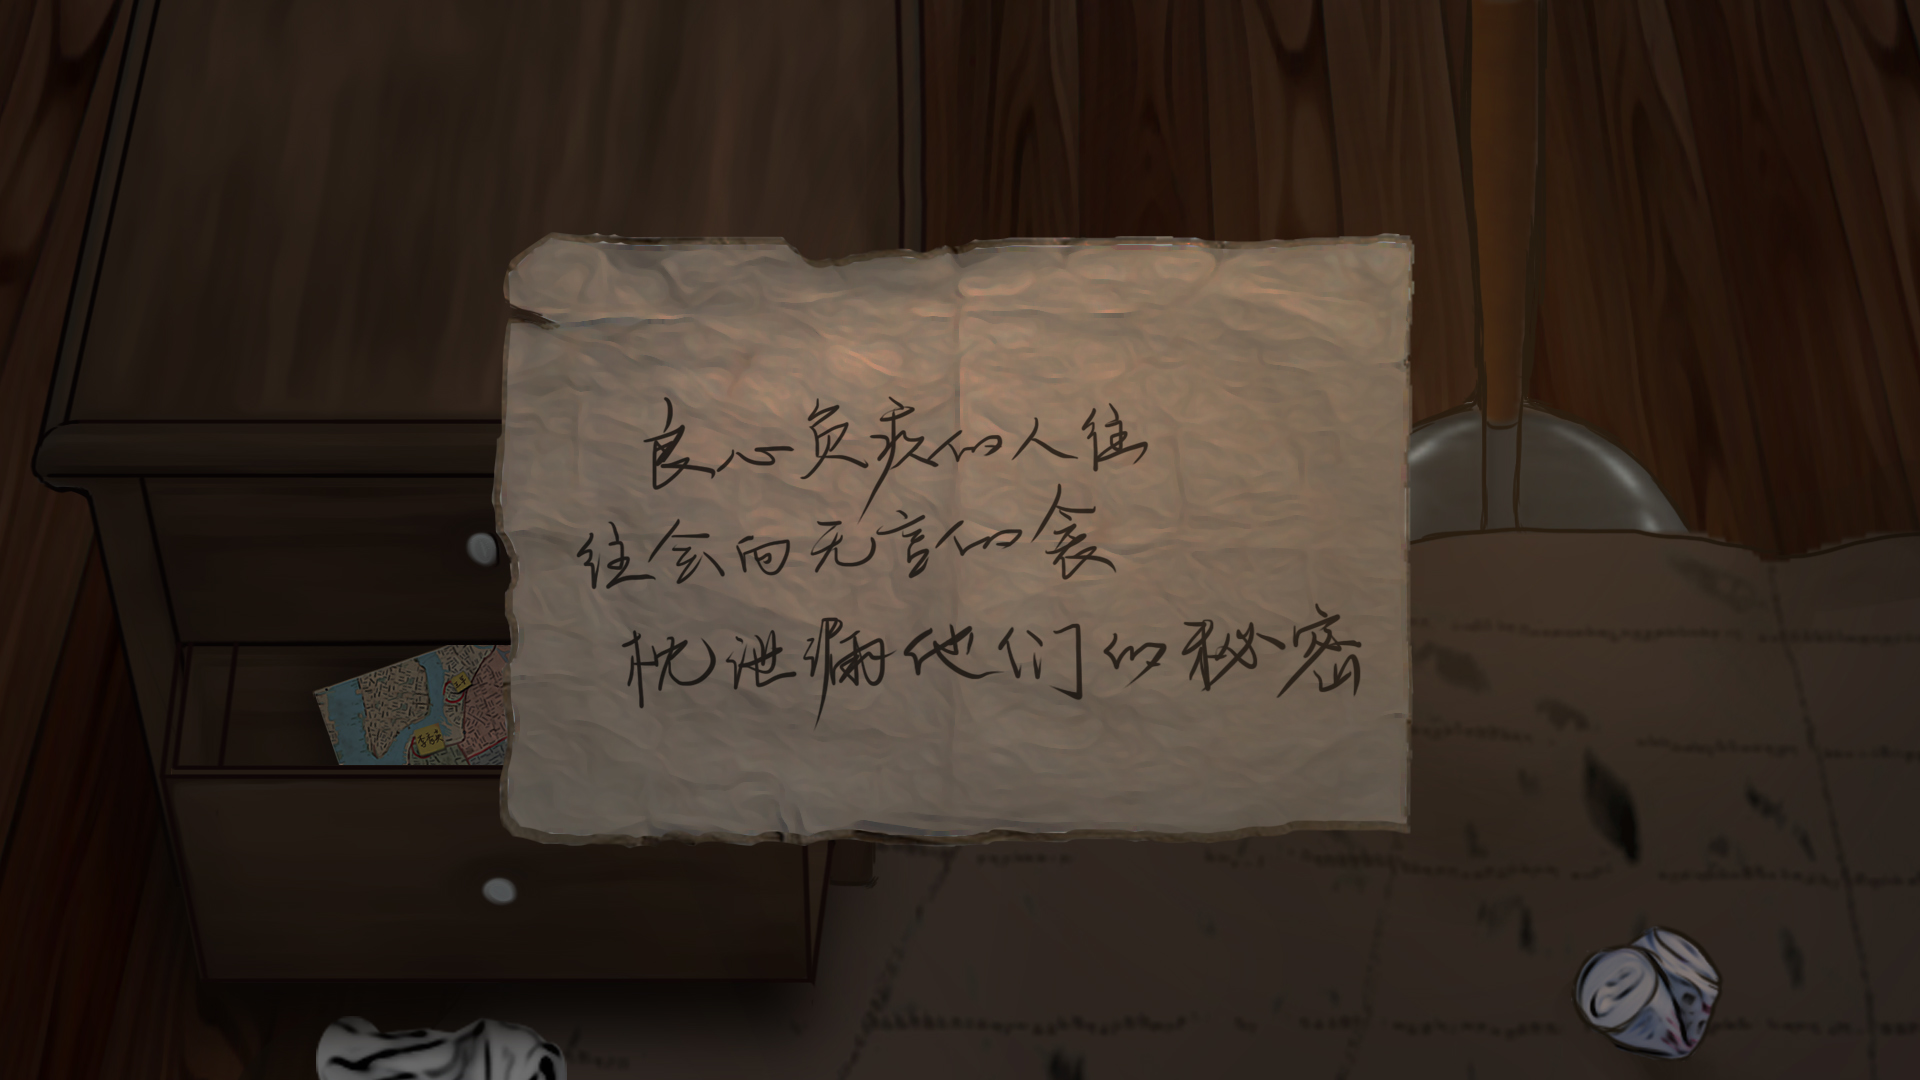 良心负疚的人往
往会向无言的衾
枕泄漏他们的秘密